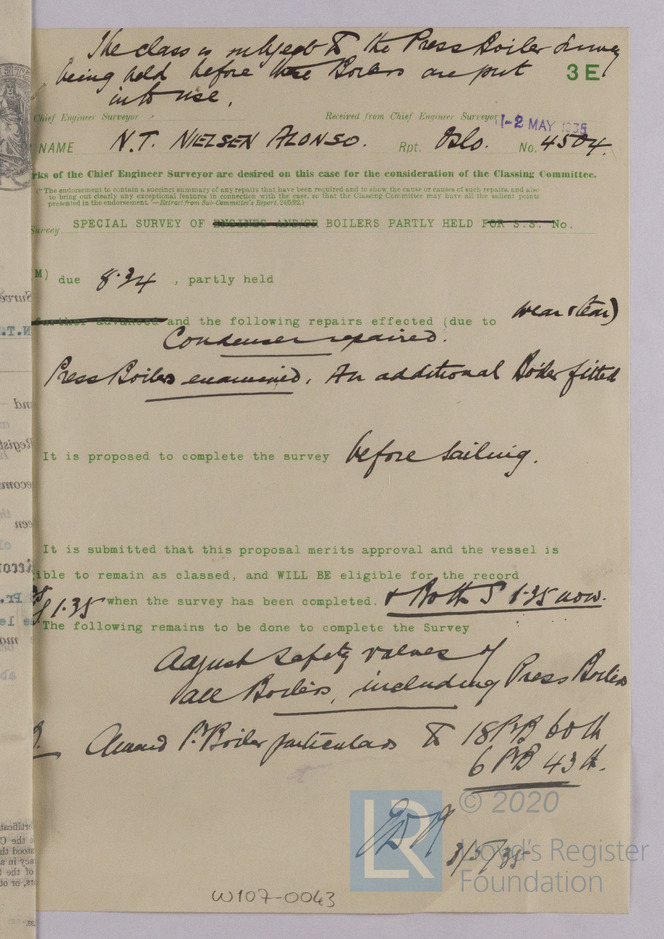 The class is subject to the Press Boiler Survey
being held before these Boilers are put
into use.
3E
Chief Engineer Surveyor
Received from Chief Engineer Surveyor
1-2 MAY 1935
NAME N.T. NIELSEN ALONSO. Rpt. Oslo. No. 4504.
rks of the Chief Engineer Surveyor are desired on this case for the consideration of the Classing Committee.
"The endorsement to contain a succinct summary of any repairs that have been required and to show the cause or causes of such repairs, and also
to bring out clearly any exceptional features in connection with the case, so that the Classing Committee may have all the salient points
presented in the endorsement."—Extract from Sub-Committee's Report,
Survey SPECIAL SURVEY OF ENGINES AND/OR BOILERS PARTLY HELD FOR S.S. No.
M) due 8.34, partly held
further advanced and the following repairs effected (due to wear & tear)
Condenser repaired.
Press Boilers examined. An additional Boiler fitted
It is proposed to complete the survey before sailing.
It is submitted that this proposal merits approval and the vessel is
ible to remain as classed, and WILL BE eligible for the record
1.35 when the survey has been completed. + Both S 1.35 now.
The following remains to be done to complete the Survey
Adjust safety valves of
all Boilers, including Press Boilers
Amend Pr Boiler particulars to 18 PrB 60 lb
6 PrB 43 lb.
3/5/35
© 2020
Lloyd's Register
Foundation
LR
W107-0043